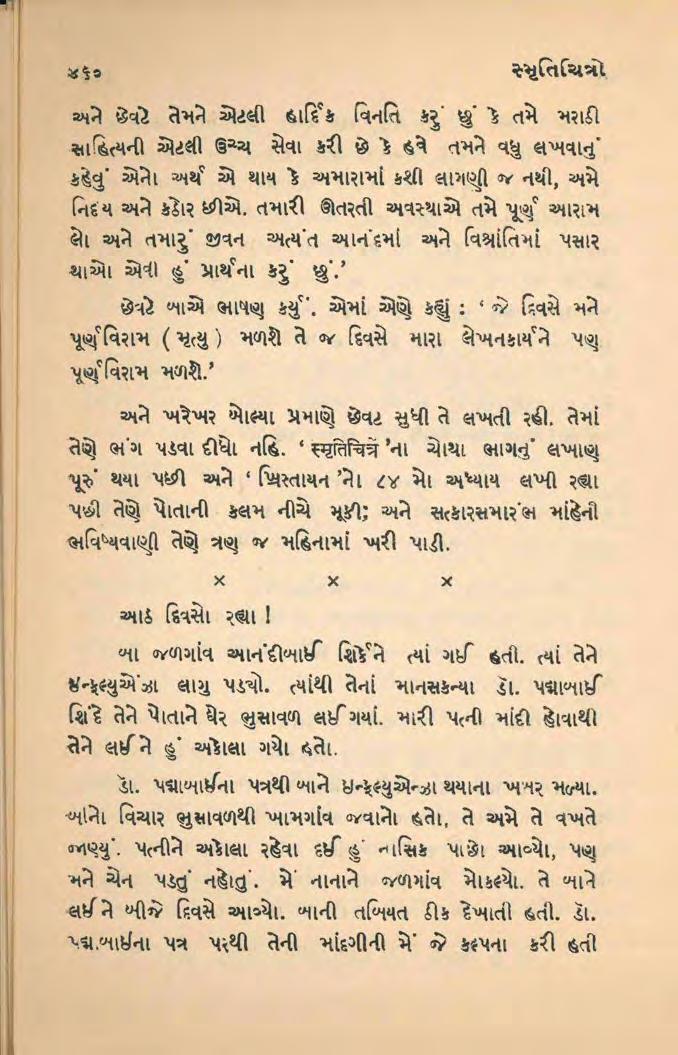 ૪૬૦ સ્મૃતિચિત્રો
અને છેવટે તેમને એટલી હાર્દિક વિનતિ કરું છું કે તમે મરાઠી
સાહિત્યની એટલી ઉચ્ચ સેવા કરી છે કે હવે તમને વધુ લખવાનું
કહેવું એનો અર્થ એ થાય કે અમારામાં કશી લાગણી જ નથી, અમે
નિર્દય અને કઠોર છીએ. તમારી ઊતરતી અવસ્થાએ તમે પૂર્ણ આરામ
લો અને તમારું જીવન અત્યંત આનંદમાં અને વિશ્રાંતિમાં પસાર
થાઓ એવી હું પ્રાર્થના કરું છું.’
છેવટે બાએ ભાષણ કર્યું. એમાં એણે કહ્યું : ‘ જે દિવસે મને
પૂર્ણવિરામ ( મૃત્યુ ) મળશે તે જ દિવસે મારા લેખનકાર્યને પણ
પૂર્ણવિરામ મળશે.’
અને ખરેખર બોલ્યા પ્રમાણે છેવટ સુધી તે લખતી રહી. તેમાં
તેણે ભંગ પડવા દીધો નહિ. ‘ स्मृतिचित्रें ’ના ચોથા ભાગનું લખાણ
પૂરું થયા પછી અને ‘ ખ્રિસ્તાયન ’નો ૮૪ મો અધ્યાય લખી રહ્યા
પછી તેણે પોતાની કલમ નીચે મૂકી; અને સત્કારસમારંભ માંહેની
ભવિષ્યવાણી તેણે ત્રણ જ મહિનામાં ખરી પાડી.
× × ×
આઠ દિવસો રહ્યા !
બા જળગાંવ આનંદીબાઈ શિર્કેને ત્યાં ગઈ હતી. ત્યાં તેને
ઇન્ફ્લ્યુએંઝા લાગુ પડ્યો. ત્યાંથી તેનાં માનસકન્યા ડૉ. પદ્માબાઈ
શિંદે તેને પોતાને ઘેર ભુસાવળ લઈ ગયાં. મારી પત્ની માંદી હોવાથી
તેને લઈને હું અકોલા ગયો હતો.
ડૉ. પદ્માબાઈના પત્રથી બાને ઇન્ફ્લ્યુએન્ઝા થયાના ખબર મળ્યા.
બાનો વિચાર ભુસાવળથી ખામગાંવ જવાનો હતો, તે અમે તે વખતે
જાણ્યું. પત્નીને અકોલા રહેવા દઈ હું નાસિક પાછો આવ્યો, પણ
મને ચેન પડતું નહોતું. મેં નાનાને જળગાંવ મોકલ્યો. તે બાને
લઈને બીજે દિવસે આવ્યો. બાની તબિયત ઠીક દેખાતી હતી. ડૉ.
પદ્માબાઈના પત્ર પરથી તેની માંદગીની મેં જે કલ્પના કરી હતી